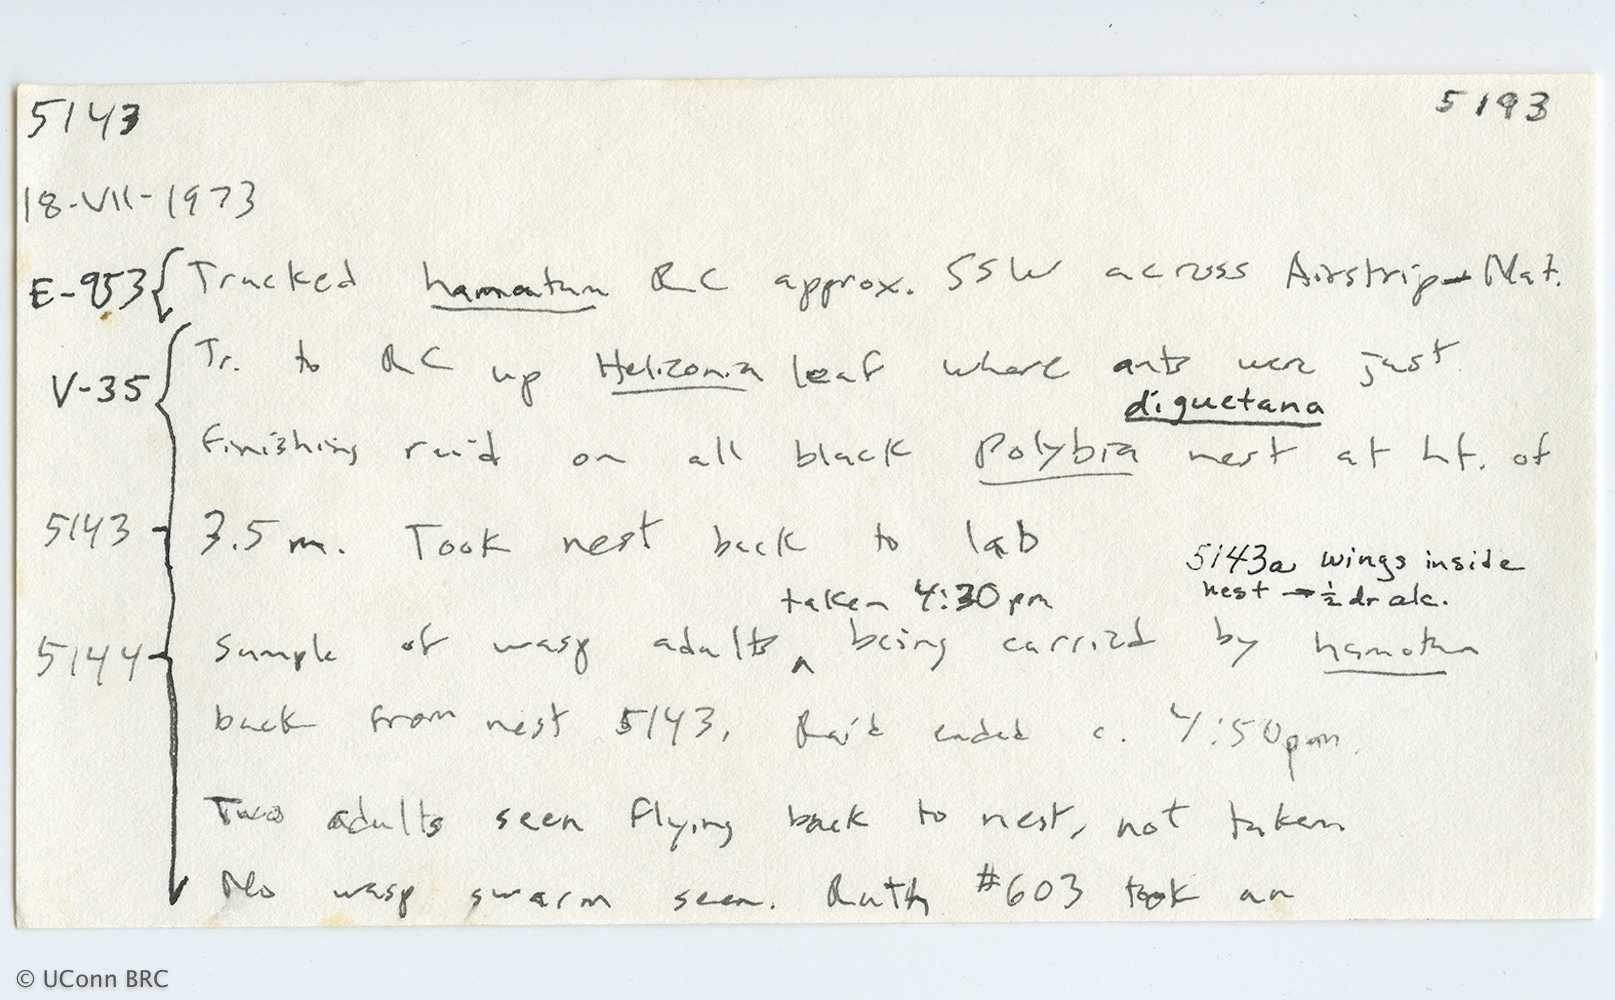 5143 5193
18-VII-1973
E-953 { Tracked hamatum RC approx. SSW across Airstrip - Mat.
V-35 { Tr. to RC up Heliconia leaf where ants were just
diguetana
finishing raid on all black Polybia nest at ht. of
5143 - 3.5 m. Took nest back to lab
5143a wings inside
nest → ½ dr alc.
taken 4:30pm
5144 - Sample of wasp adults ^ being carried by hamatum
back from nest 5143. Raid ended c. 4:50pm.
Two adults seen flying back to nest, not taken
No wasp swarm seen. Ruth #603 took an
© UConn BRC